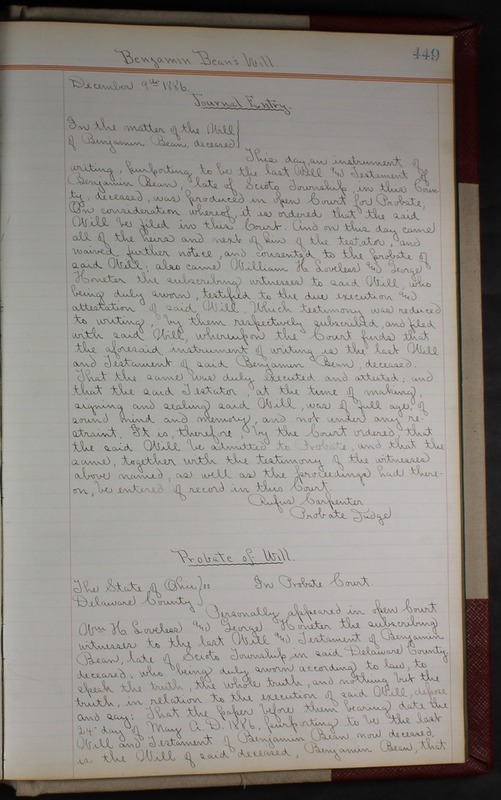 449
Benjamin Bean's Will
December 9th 1886.
Journal Entry.
In the matter of the Will
of Benjamin Bean, deceased
This day, an instrument of
writing, purporting to be the last Will & Testament of
Benjamin Bean, late of Scioto Township, in this Coun
ty, deceased, was produced in open Court for Probate;
On consideration whereof, it is ordered that the said
Will be filed in this Court. And on this day came
all of the heirs and next of kin of the testator, and
waived further notice, and consented to the probate of
said Will; also came William H Loveless & George
Honeter the subscribing witnesses to said Will, who
being duly sworn, testified to the due execution &
attestation of said Will. Which testimony was reduced
to writing, by them respectively subscribed, and filed
with said Will, whereupon the Court finds that
the aforesaid instrument of writing is the last Will
and Testament of said Benjamin Bean, deceased.
That the same was duly executed and attested; and
that the said Testator, at the time of making,
signing and sealing said Will, was of full age, of
sound mind and memory, and not under any re-
straint. It is, therefore, by the Court ordered, that
the said Will be admitted to Probate, and that the
same, together with the testimony of the witnesses
above named, as well as the proceedings had there-
on, be entered of record in this Court
Rufus Carpenter
Probate Judge
Probate of Will.
The State of Ohio } ss In Probate Court.
Delaware County
Personally appeared in open Court
Wm H Loveless & George Honeter the subscribing
witnesses to the last Will & Testament of Benjamin
Bean, late of Scioto Township in said Delaware County
deceased, who being duly sworn according to law, to
speak the truth, the whole truth, and nothing but the
truth, in relation to the execution of said Will, depose
and say: That the paper before them bearing date the
24th day of May A.D. 1886, purporting to be the last
Will and Testament of Benjamin Bean now deceased,
is the Will of said deceased, Benjamin Bean, that